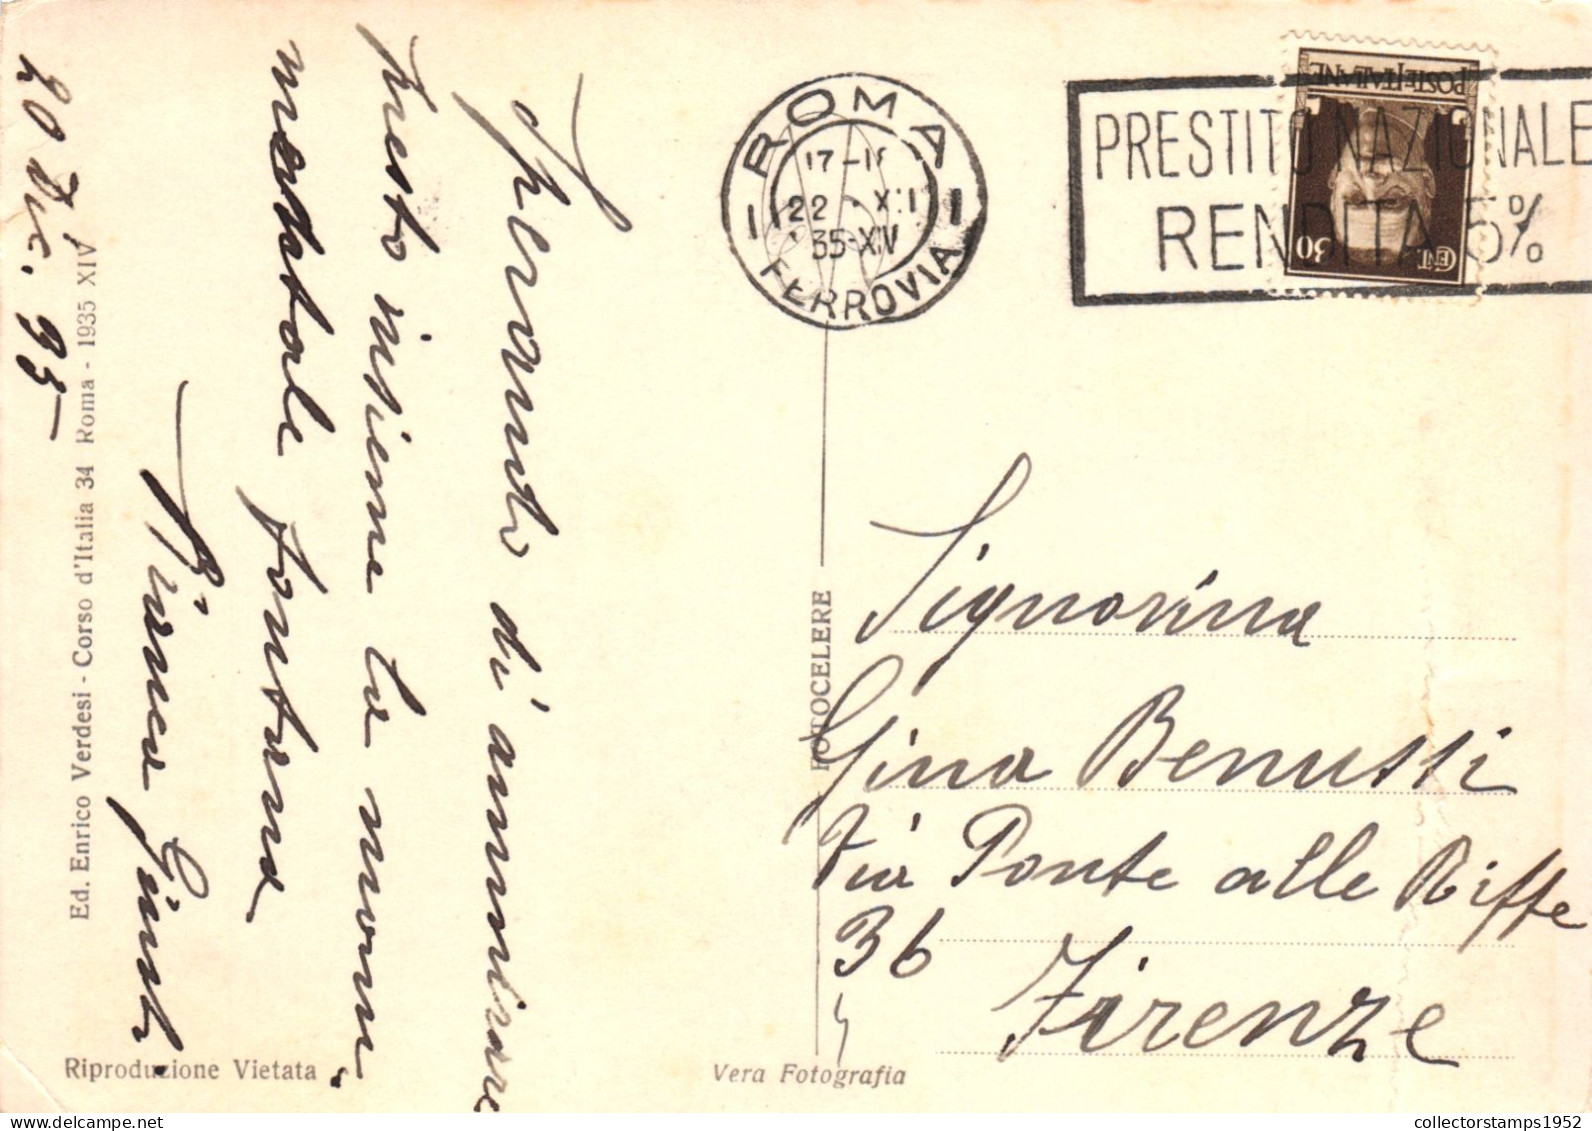 20 Dic. 35
Sperando di ammirare
presto insieme la nuova
meritale fontana
Ed. Enrico Verdesi - Corso d'Italia 34 Roma - 1935 XIV
Riproduzione Vietata
FOTOCELERE
Vera Fotografia
ROMA
17-18
22 · XII
35-XIV
FERROVIA
PRESTITO NAZIONALE
RENDITA 5%
POSTE ITALIANE
30 CENT
Signorina
Gina Benussi
Via Ponte alle Riffe
36
Firenze
collectorstamps1952